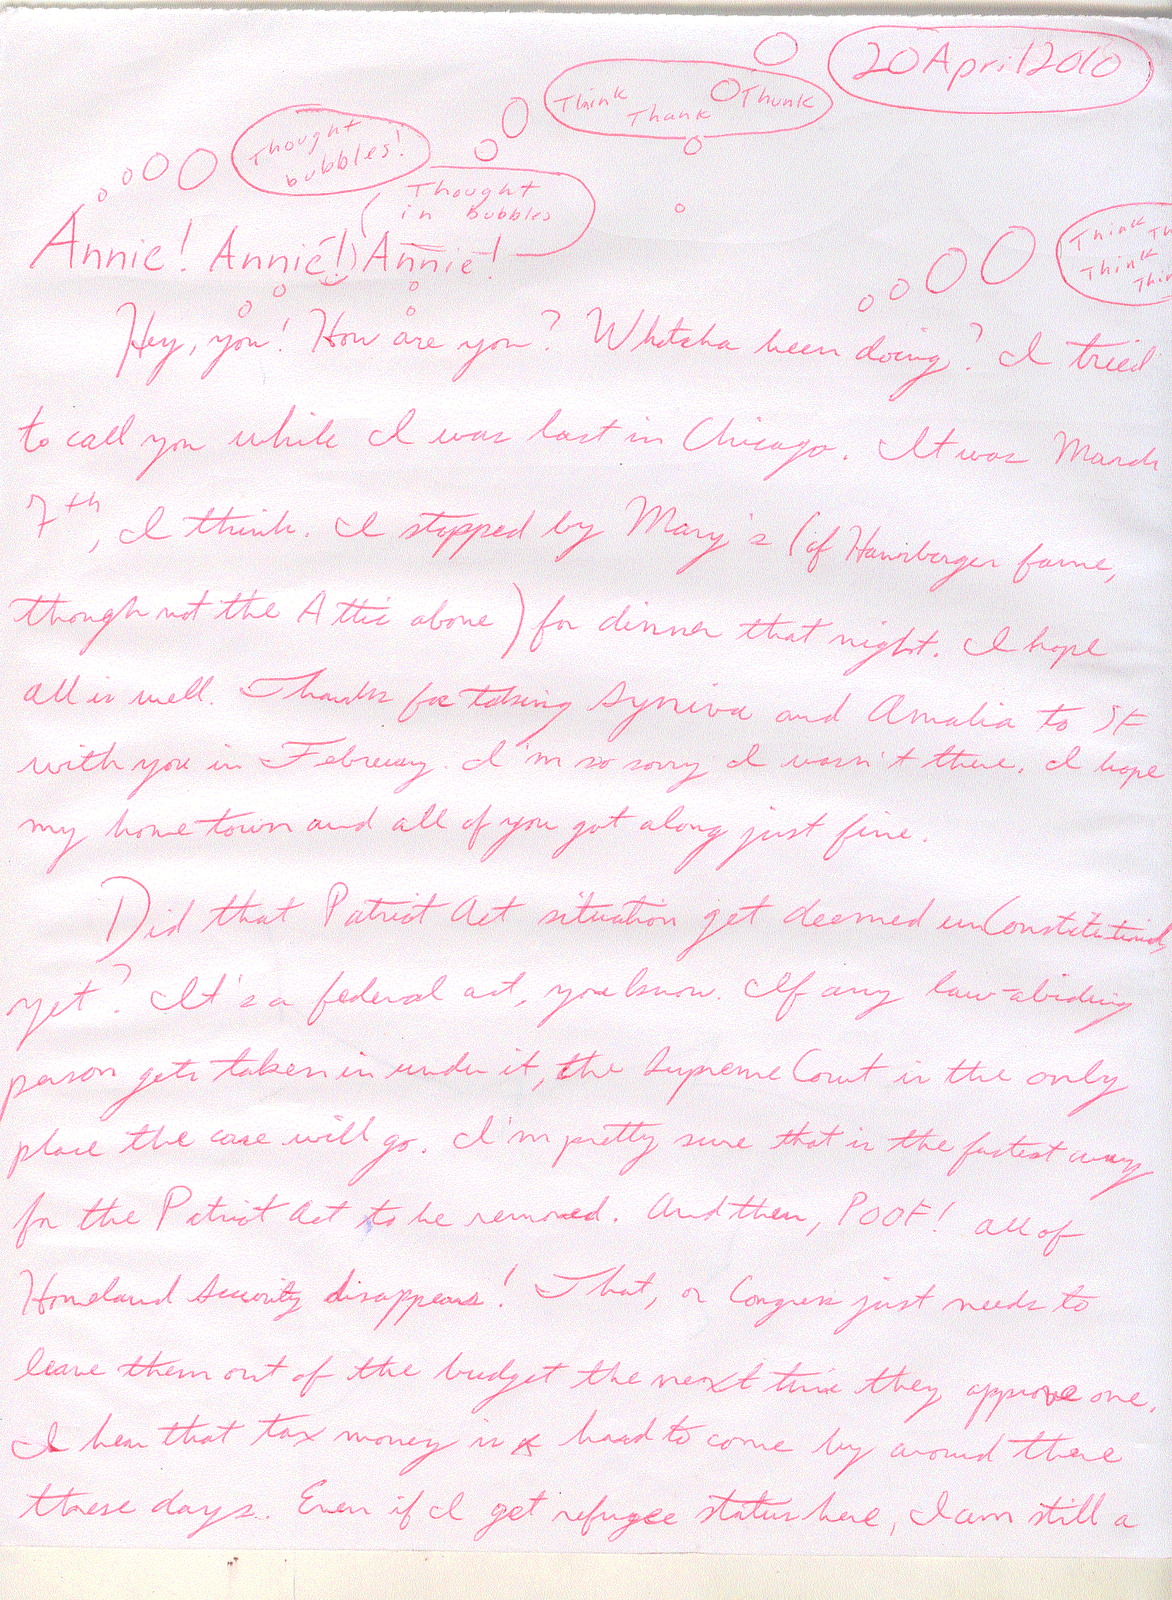 20 April 2010
Think
Thank
Thunk
Thought
bubbles!
Thought
in Bubbles
Think Th
Think
Thin
Annie! Annie! Annie!
Hey, you! How are you? Whatcha been doing? I tried
to call you while I was last in Chicago. It was March
7th, I think. I stopped by Mary's (of Hamburger fame,
though not the Attic above) for dinner that night. I hope
all is well. Thanks for taking Syniva and Amalia to SF
with you in February. I'm so sorry I wasn't there. I hope
my home town and all of you got along just fine.
Did that Patriot Act situation get deemed unConstitutional,
yet? It's a federal act, you know. If any law-abiding
person gets taken in under it, the Supreme Court is the only
place the case will go. I'm pretty sure that is the fastest way
for the Patriot Act to be removed. And then, POOF! all of
Homeland Security disappears! That, or Congress just needs to
leave them out of the budget the next time they approve one.
I hear that tax money is hard to come by around there
these days. Even if I get refugee status here, I am still a